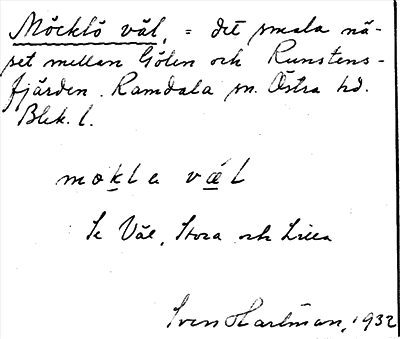 Möcklö väl, = det smala nä-
set mellan Gölen och Runstens-
fjärden. Ramdala sn. Östra hd.
Blek. l.
mokla væl
Se Väl, Stora och Lilla
Sven Hartman, 1932